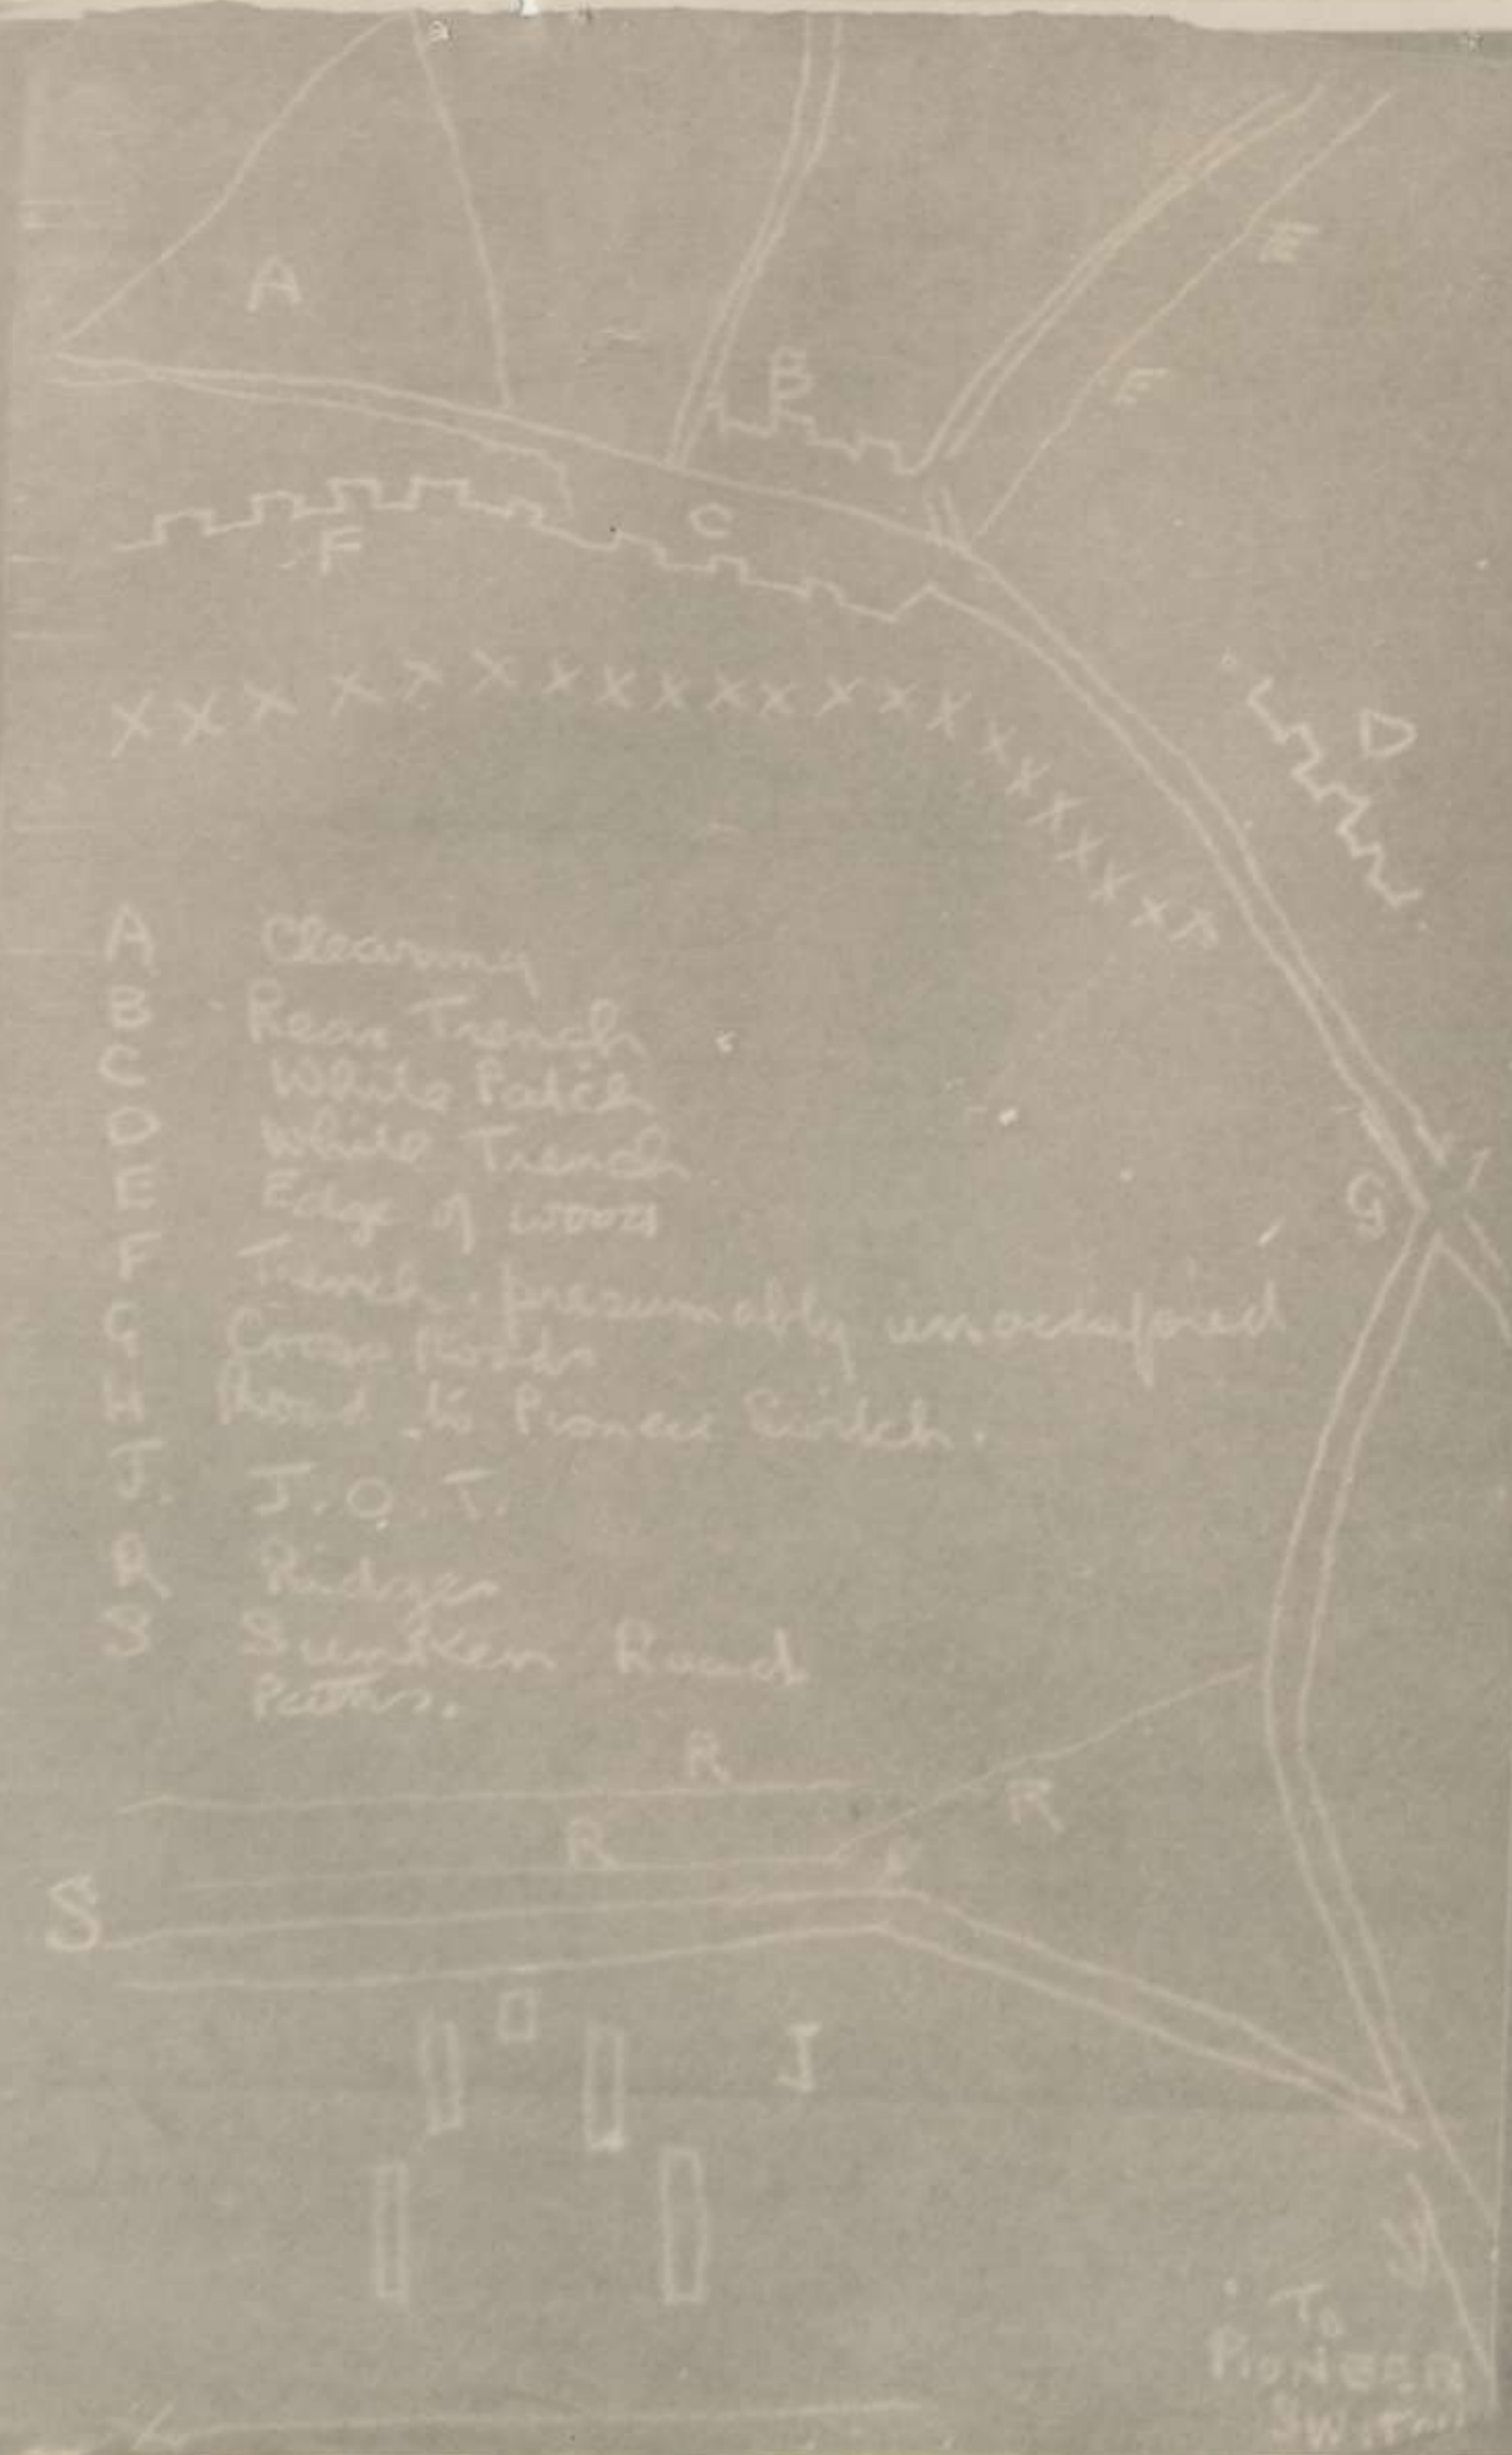 A
E
B
E
C
F
D
A Clearing
B Rear Trench
C White Patch
D White Trench
E Edge of wood
F Trench. presumably unoccupied
G Cross Roads
H Road to Pioneer Switch.
J. J.O.T.
R Ridges
S Sunken Road
Paths.
G
R
R
R
S
J
To
PIONEER
SWITCH